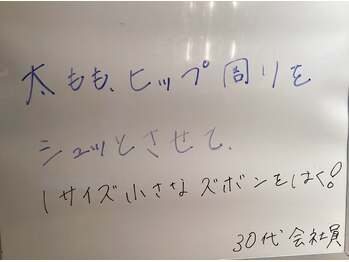 太もも、ヒップ周りを
シュッとさせて、
1サイズ小さなズボンをはく!
30代会社員